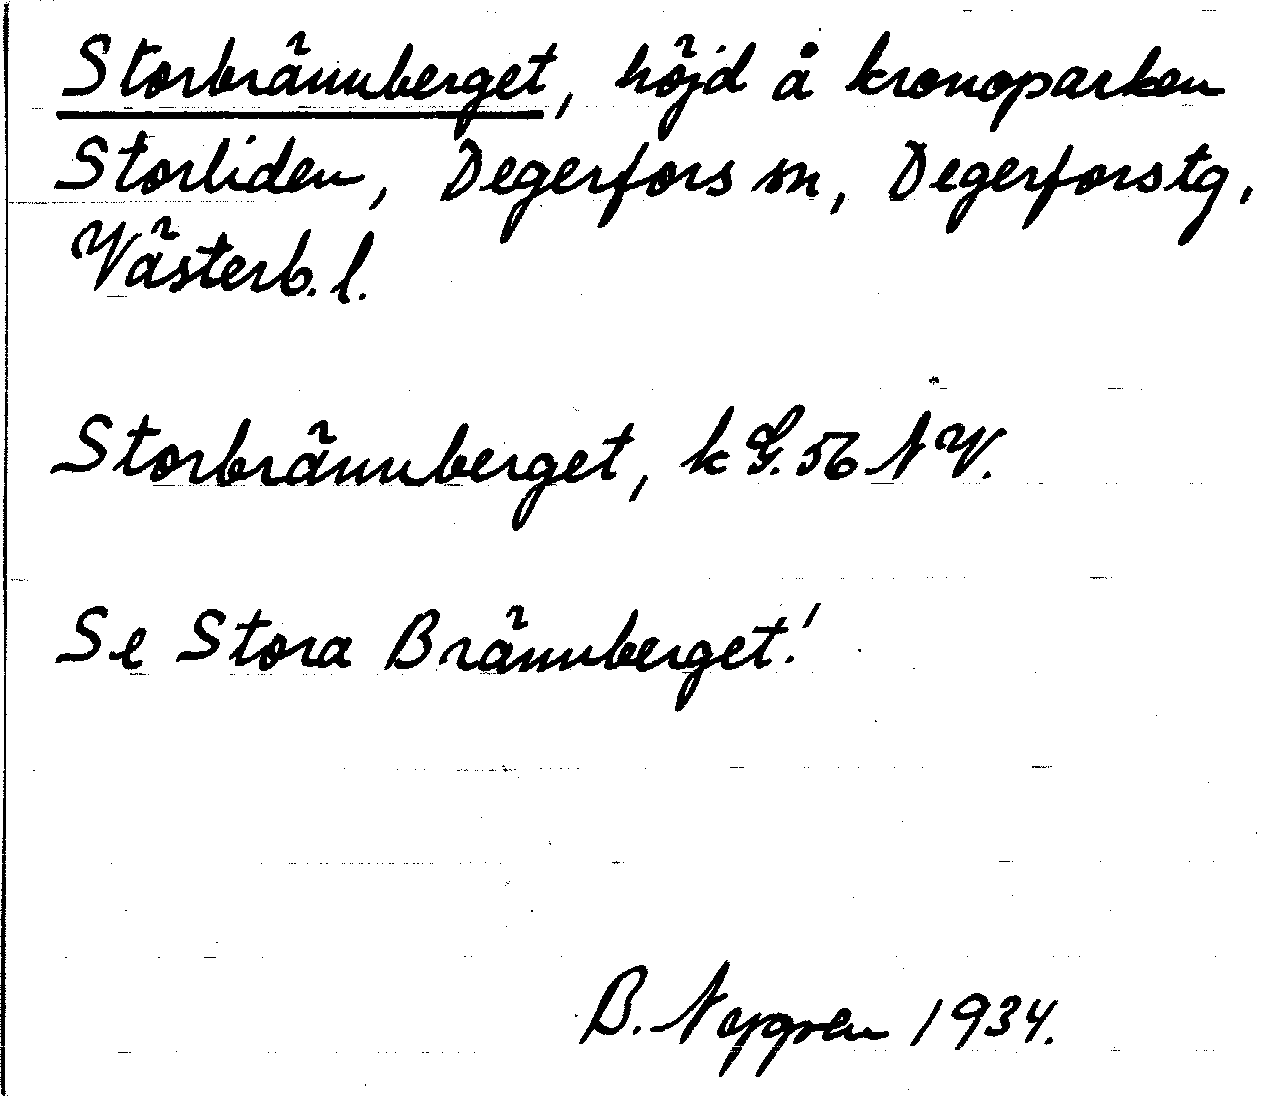 Storbrännberget, höjd å kronoparken
Storliden, Degerfors sn, Degerfors tg,
Västerb. l.
Storbrännberget, k G. 56 NV.
Se Stora Brännberget!
B. Nygren 1934.